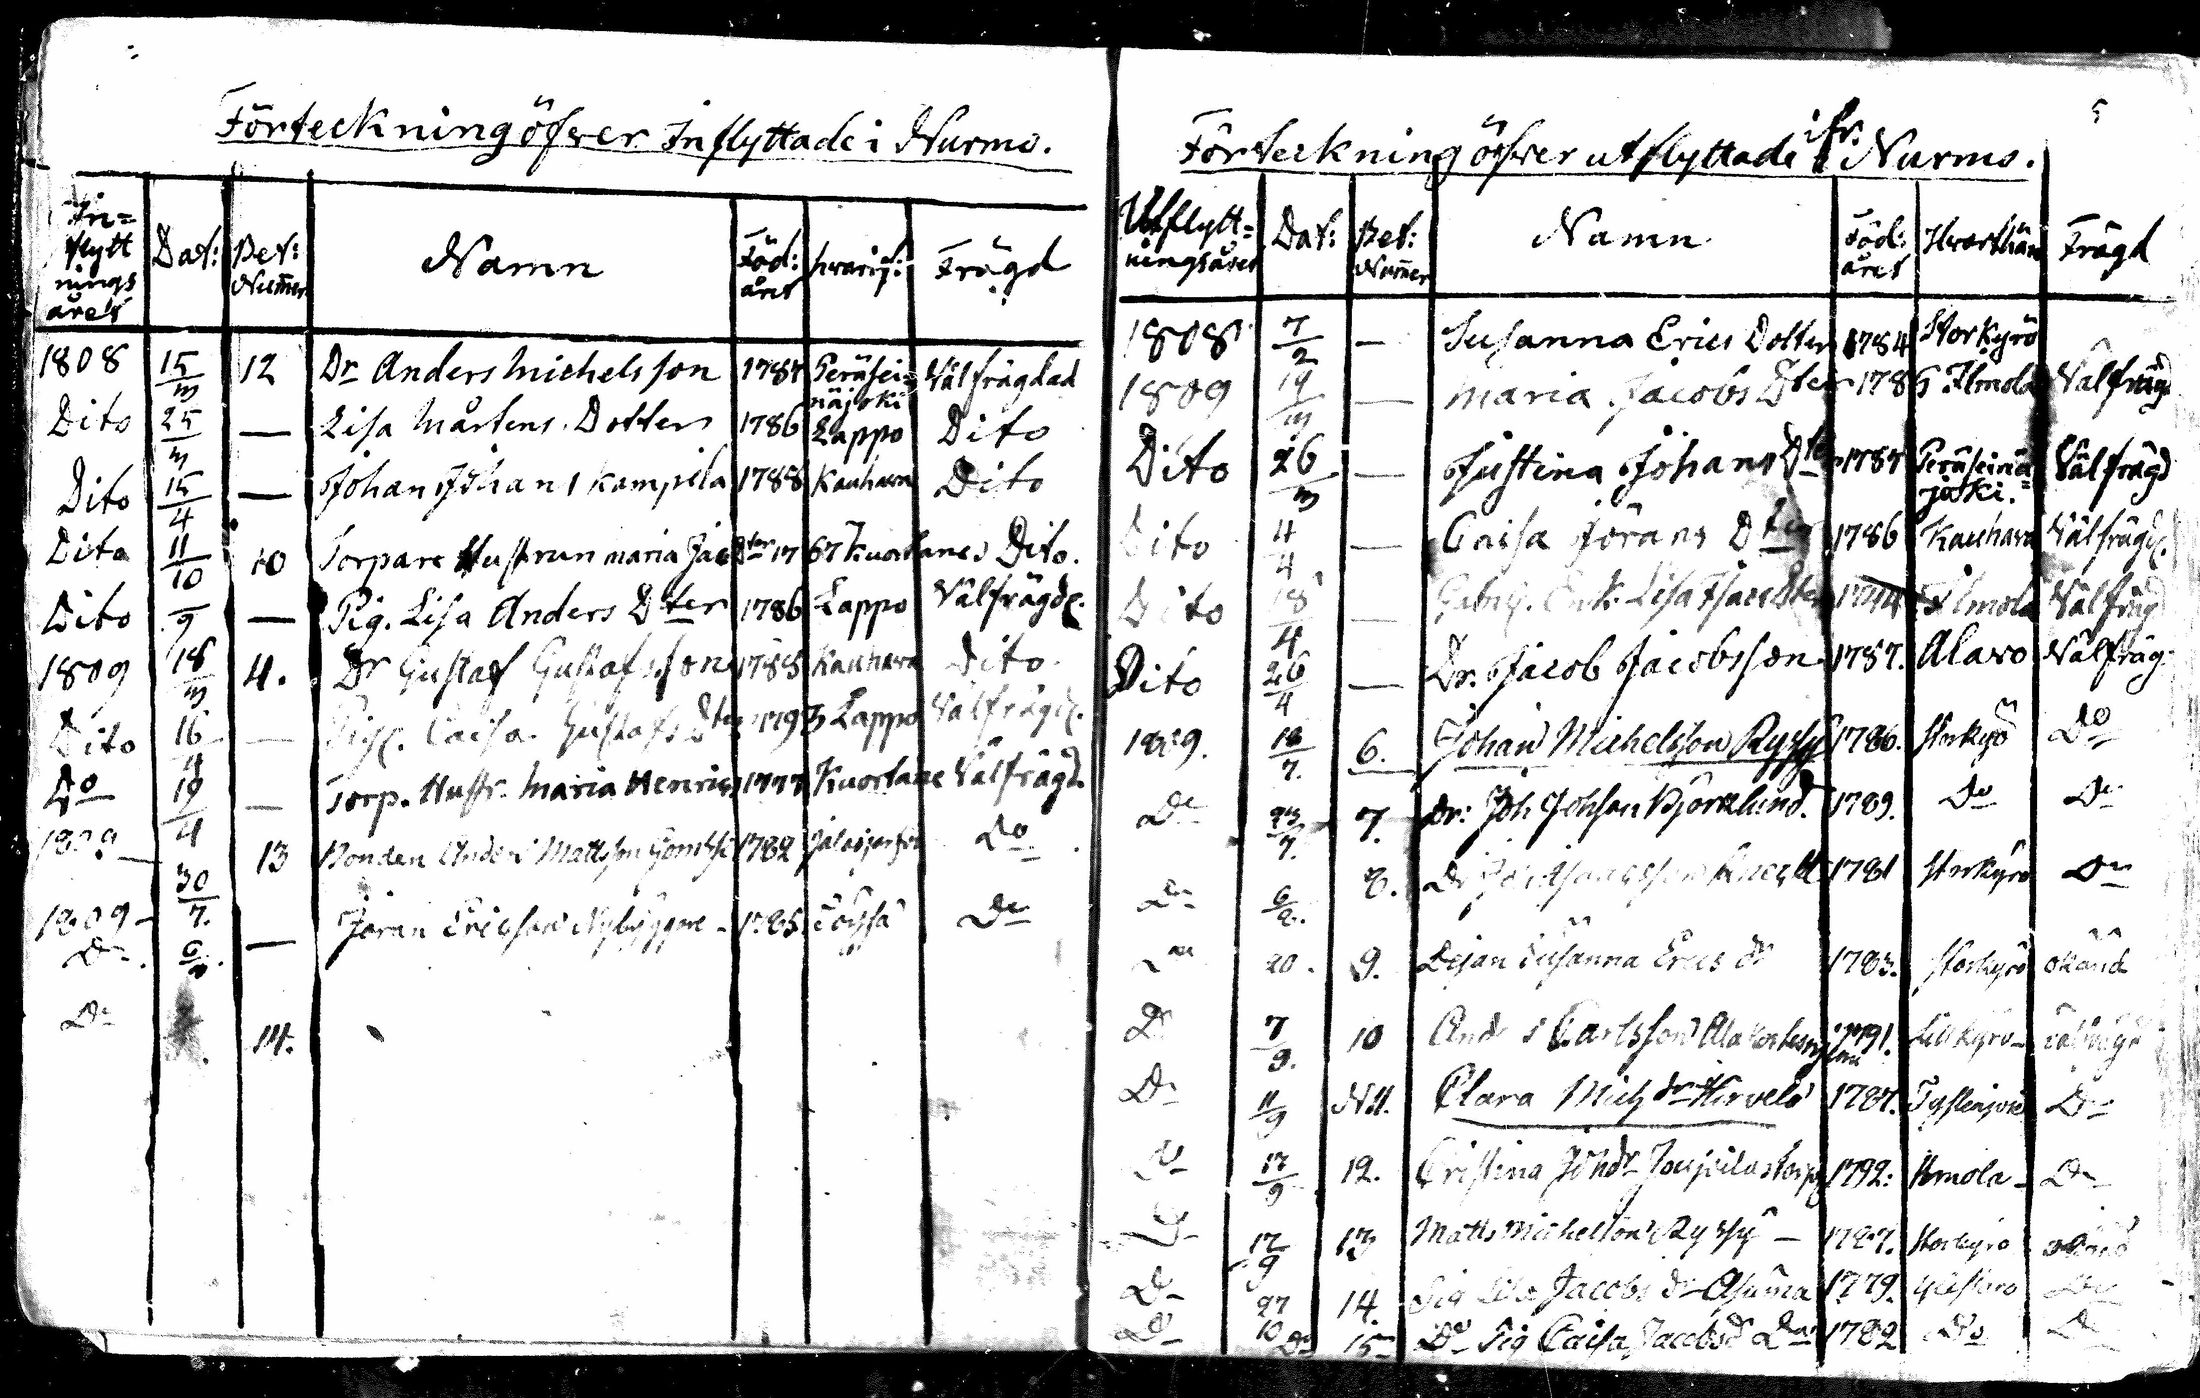 Förteckning öfver Inflyttade i Nurmo.
In= flytt nings året Dat: Bet: Num̄er Namn Föd: året hvarif: Frägd
1808 15/3 12 Dr Anders Michelsson 1787 Peräsei= näjoki Välfrägdad
Dito 25/3 — Lisa Mårtens Dotter 1786 Lappo Dito
Dito 15/4 — Johan Johans kampila 1788 Kauhava Dito
Dito 11/10 10 Torpare Hustrun Maria Jac Dter 1767 Kuortanes Dito.
Dito /9 — Pig. Lisa Anders Dter 1786 Lappo Välfrägd.
1809 18/3 4. Dr Gustaf Gustafsson 1785 Kauhava Dito
Dito 16/4 — Pig. Caisa Gustafs Dter 1793 Lappo Välfrägd.
Do 19/4 — Torp. Hustr. Maria Henrics 1777 Kuortane Välfrägd.
1809 30/7. 13 Bonden Anders Mattsson 1782 Do
1809 – Do 6/8. — Jöran Ericsson Nybyggare – 1785. Töysä Do
Do 14.
Förteckning öfver utflyttade ifr. Nurmo. 5
Utflytt= ningsåret Dat: Bet: Num̄er Namn Föd: året Hvarthän Frägd
1808 7/2 — Susanna Erics Dotter 1784 Storkyrö
1809 19/3 — Maria Jacobs Dter 1786 Ilmola Välfrägd
Dito 26/3 — Justina Johans Dter 1787 Peräseinä= joki. Välfrägd
Dito 4/4 — Caisa Jörans Dter 1786 Kauhava Välfrägd.
Dito 18/4 — Enk. Lisa 1744 Ilmola Välfrägd
Dito 26/4 — Dr. Jacob Jacobsson 1787. Alavo Välfräg.
1809. 18/7. 6. Johan Michelsson Ryssy 1786. Storkyrö Do
Do 23/7. 7. Dr: Joh Johsson Björklund. 1789. Do Do
Do 6/8. 8. Dr 1781 Storkyro Do
Do 20. 9. Pigan Susanna Erics dr 1783. Storkyrö okänd
Do 7/9. 10 And s Carlsson 1791. Lillkyro – välfrägd
Do 11/9 N 11. Clara Mich dr Hirvelä 1787. Do
Do 17/9 12. Cristina Joh dr Joupila torp 1792: Ilmola – Do
Do 17/9 13 Matts Michelsson Ryssy – 1787. Storkyro okänd
Do 27/10 14. Pig Jacobs dr 1779. Ylistaro Do
Do Do 15 Do Pig Caisa Jacobs d 1782 Do Do